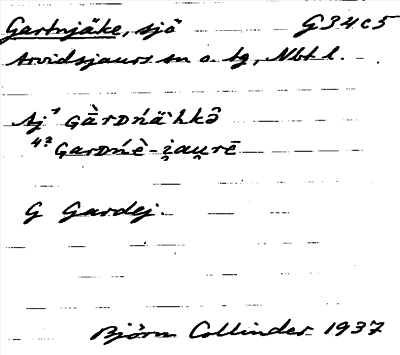 Gartnjäke, sjö G34c5
Arvidsjaurs sn o. tg, Nbt l.
Aj¹ Gā̀rDńä`hkô
4? GarDńè-i̯au̯rē
G Gardej.
Björn Collinder 1937